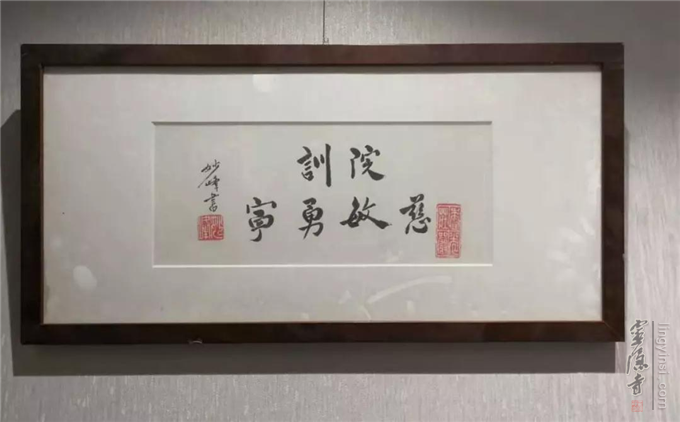 院訓
慈敏勇寧
妙峰書
靈隱寺
lingyinsi.com